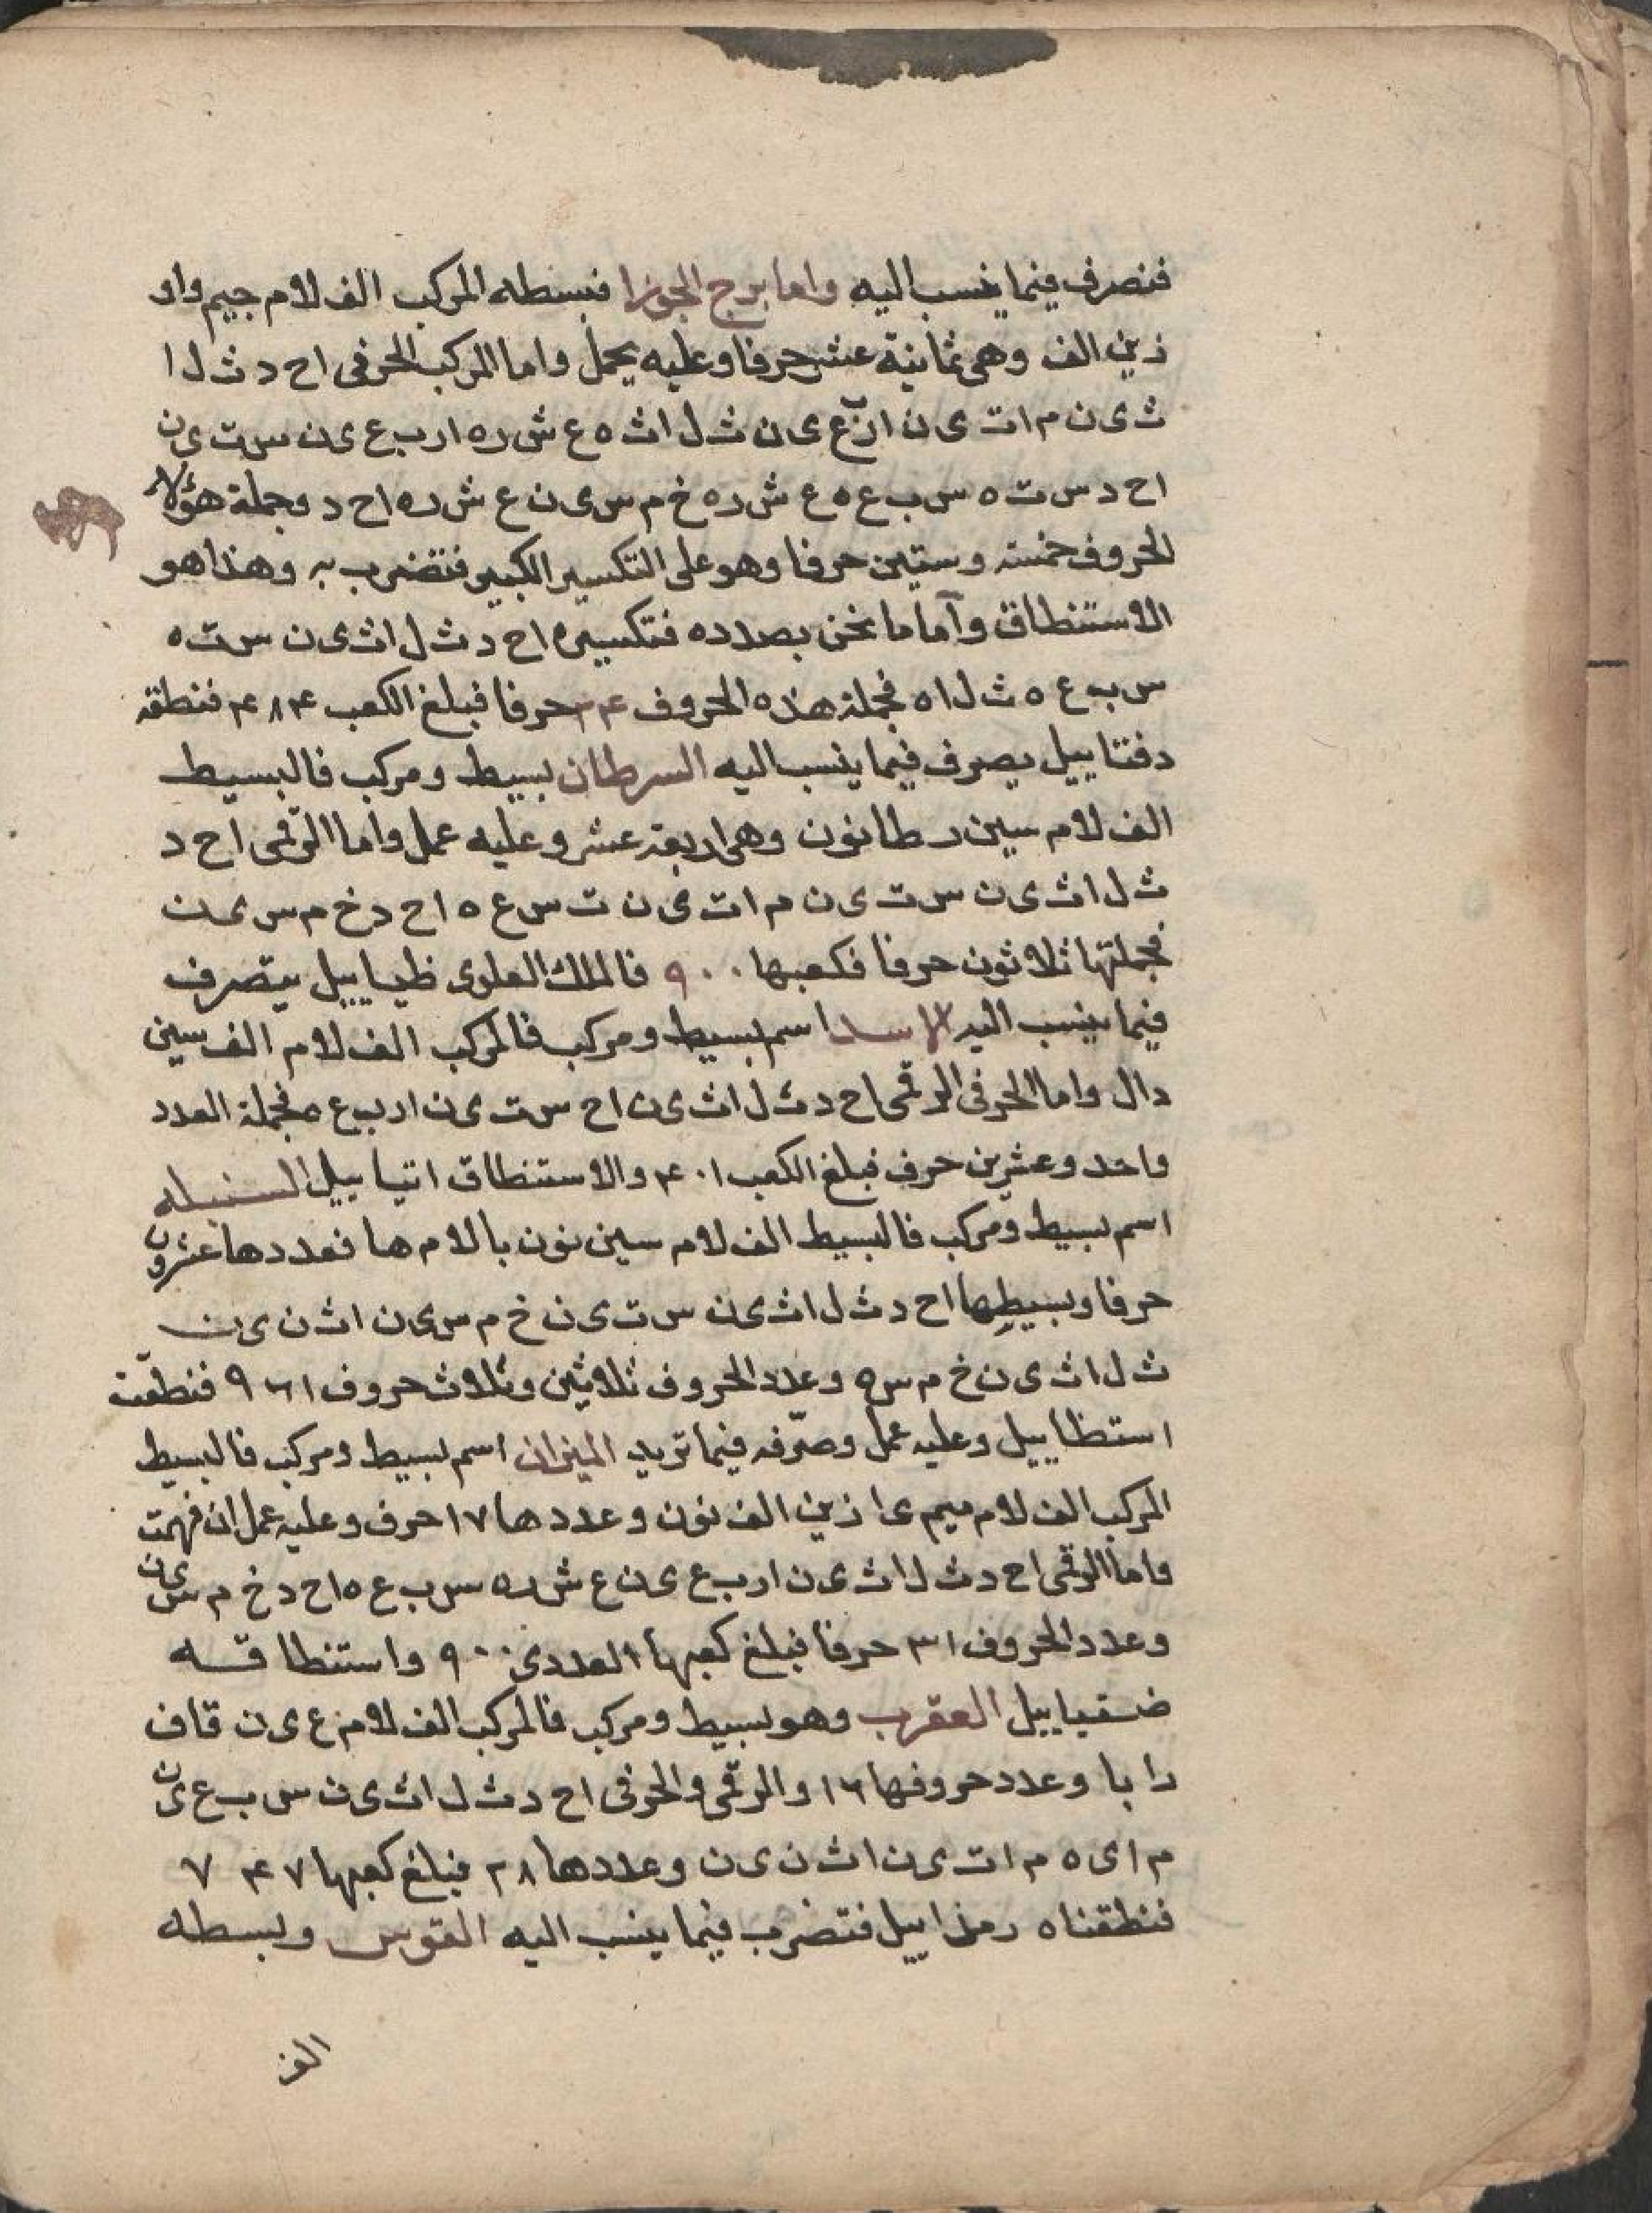 فنصرف فيما ينسب اليه واما برج الجوزا فبسطه المركب الف لام جيم واو
زين الف وهى ثمانية عشر حرفا وعليه يحمل واما المركب الحرفى اح د ث ل ا
ث ى ن م ا ت ى ن ا ر ب ع ى ن ث ل ا ث ه ع ش ر ه ا ر ب ع ى ن س ت ى ن
اح د س ت ه س ب ع ه ع ش ر ه خ م س ى ن ع ش ر ه اح د وجملة هؤلاء
الحروف خمسة وستين حرفا وهو على التكسير الكبير فتضرب به وهذا هو
الاستنطاق وآما ما نحن بصدده فتكسيره اح د ث ل ا ث ى ن س ت ه
س ب ع ه ث ل ا ه فجملة هذه الحروف ٢٤ حرفا فبلغ الكعب ٤٨٤ فنطقه
دفتاييل يصرف فيما ينسب اليه السرطان بسيط ومركب فالبسيط
الف لام سين ر طا نون وهى اربعة عشر وعليه عمل واما الرقمى اح د
ث ل ا ث ى ن س ت ى ن م ا ت ى ن ت س ع ه اح د خ م س ى ن
فجملتها ثلاثون حرفا فكعبها ٩٠٠ فالملك العلوى ظياييل يتصرف
فيما ينسب اليه الاسد اسم بسيط ومركب فالمركب الف لام الف سين
دال واما الحرفى الرقمى اح د ث ل ا ث ى ن اح س ت ى ن ا ر ب ع ه فجملة العدد
واحد وعشرين حرف فبلغ الكعب ٤٠١ والاستنطاق اتياييل السنبله
اسم بسيط ومركب فالبسيط الف لام سين نون با لام ها فعددها عشرون
حرفا وبسيطها اح د ث ل ا ث ى ن س ت ى ن خ م س ى ن ا ث ن ى ن
ث ل ا ث ى ن خ م س ه وعدد الحروف ثلاثين وثلاث حروف ٩٦١ فنطقت
استظاييل وعليه عمل وصرّفه فيما تريد الميزان اسم بسيط ومركب فالبسيط
المركب الف لام ميم ى ا زين الف نون وعددها ١٧ حرف وعليه عمل ان فهمت
واما الرقمى اح د ث ل ا ث ى ن ا ر ب ع ى ن ع ش ر ه س ب ع ه اح د خ م س ى ن
وعدد الحروف ٣١ حرفا فبلغ كعبها العددى ٩٠٠ واستنطاقه
ضقياييل العقرب وهو بسيط ومركب فالمركب الف لام ع ى ن قاف
را با وعدد حروفها ١٦ والرقمى والحرفى اح د ث ل ا ث ى ن س ب ع ى ن
م ا ى ه م ا ت ى ن ا ث ن ى ن وعددها ٢٨ فبلغ كعبها ٧٤٧
فنطقناه رمذاييل فتضرب فيما ينسب اليه القوس وبسطه
الف